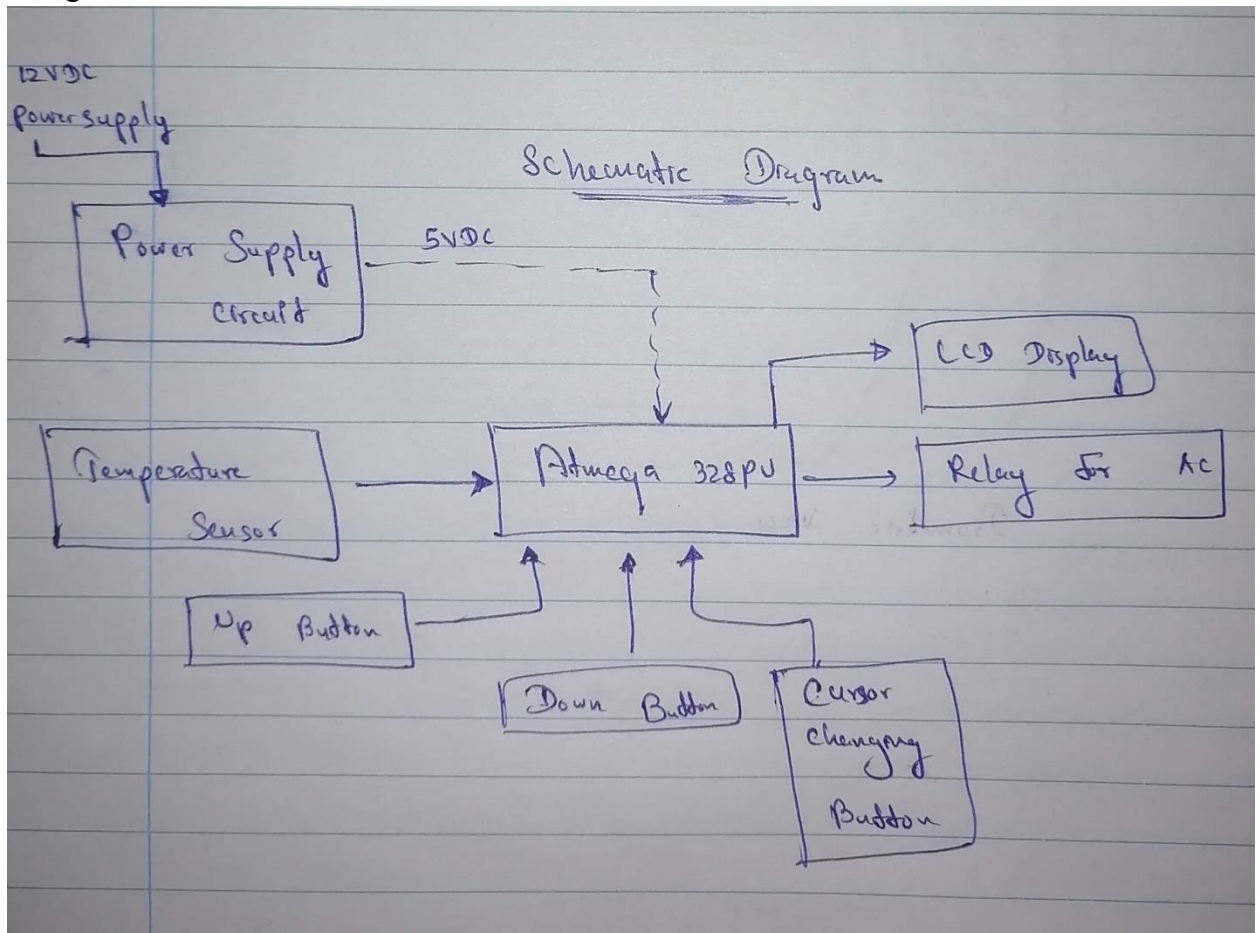 12VDC
Power supply
Schematic Diagram
Power Supply
Circuit
5VDC
LCD Display
Temperature
Sensor
Atmega 328PU
Relay for AC
Up Button
Down Button
Cursor
Changing
Button